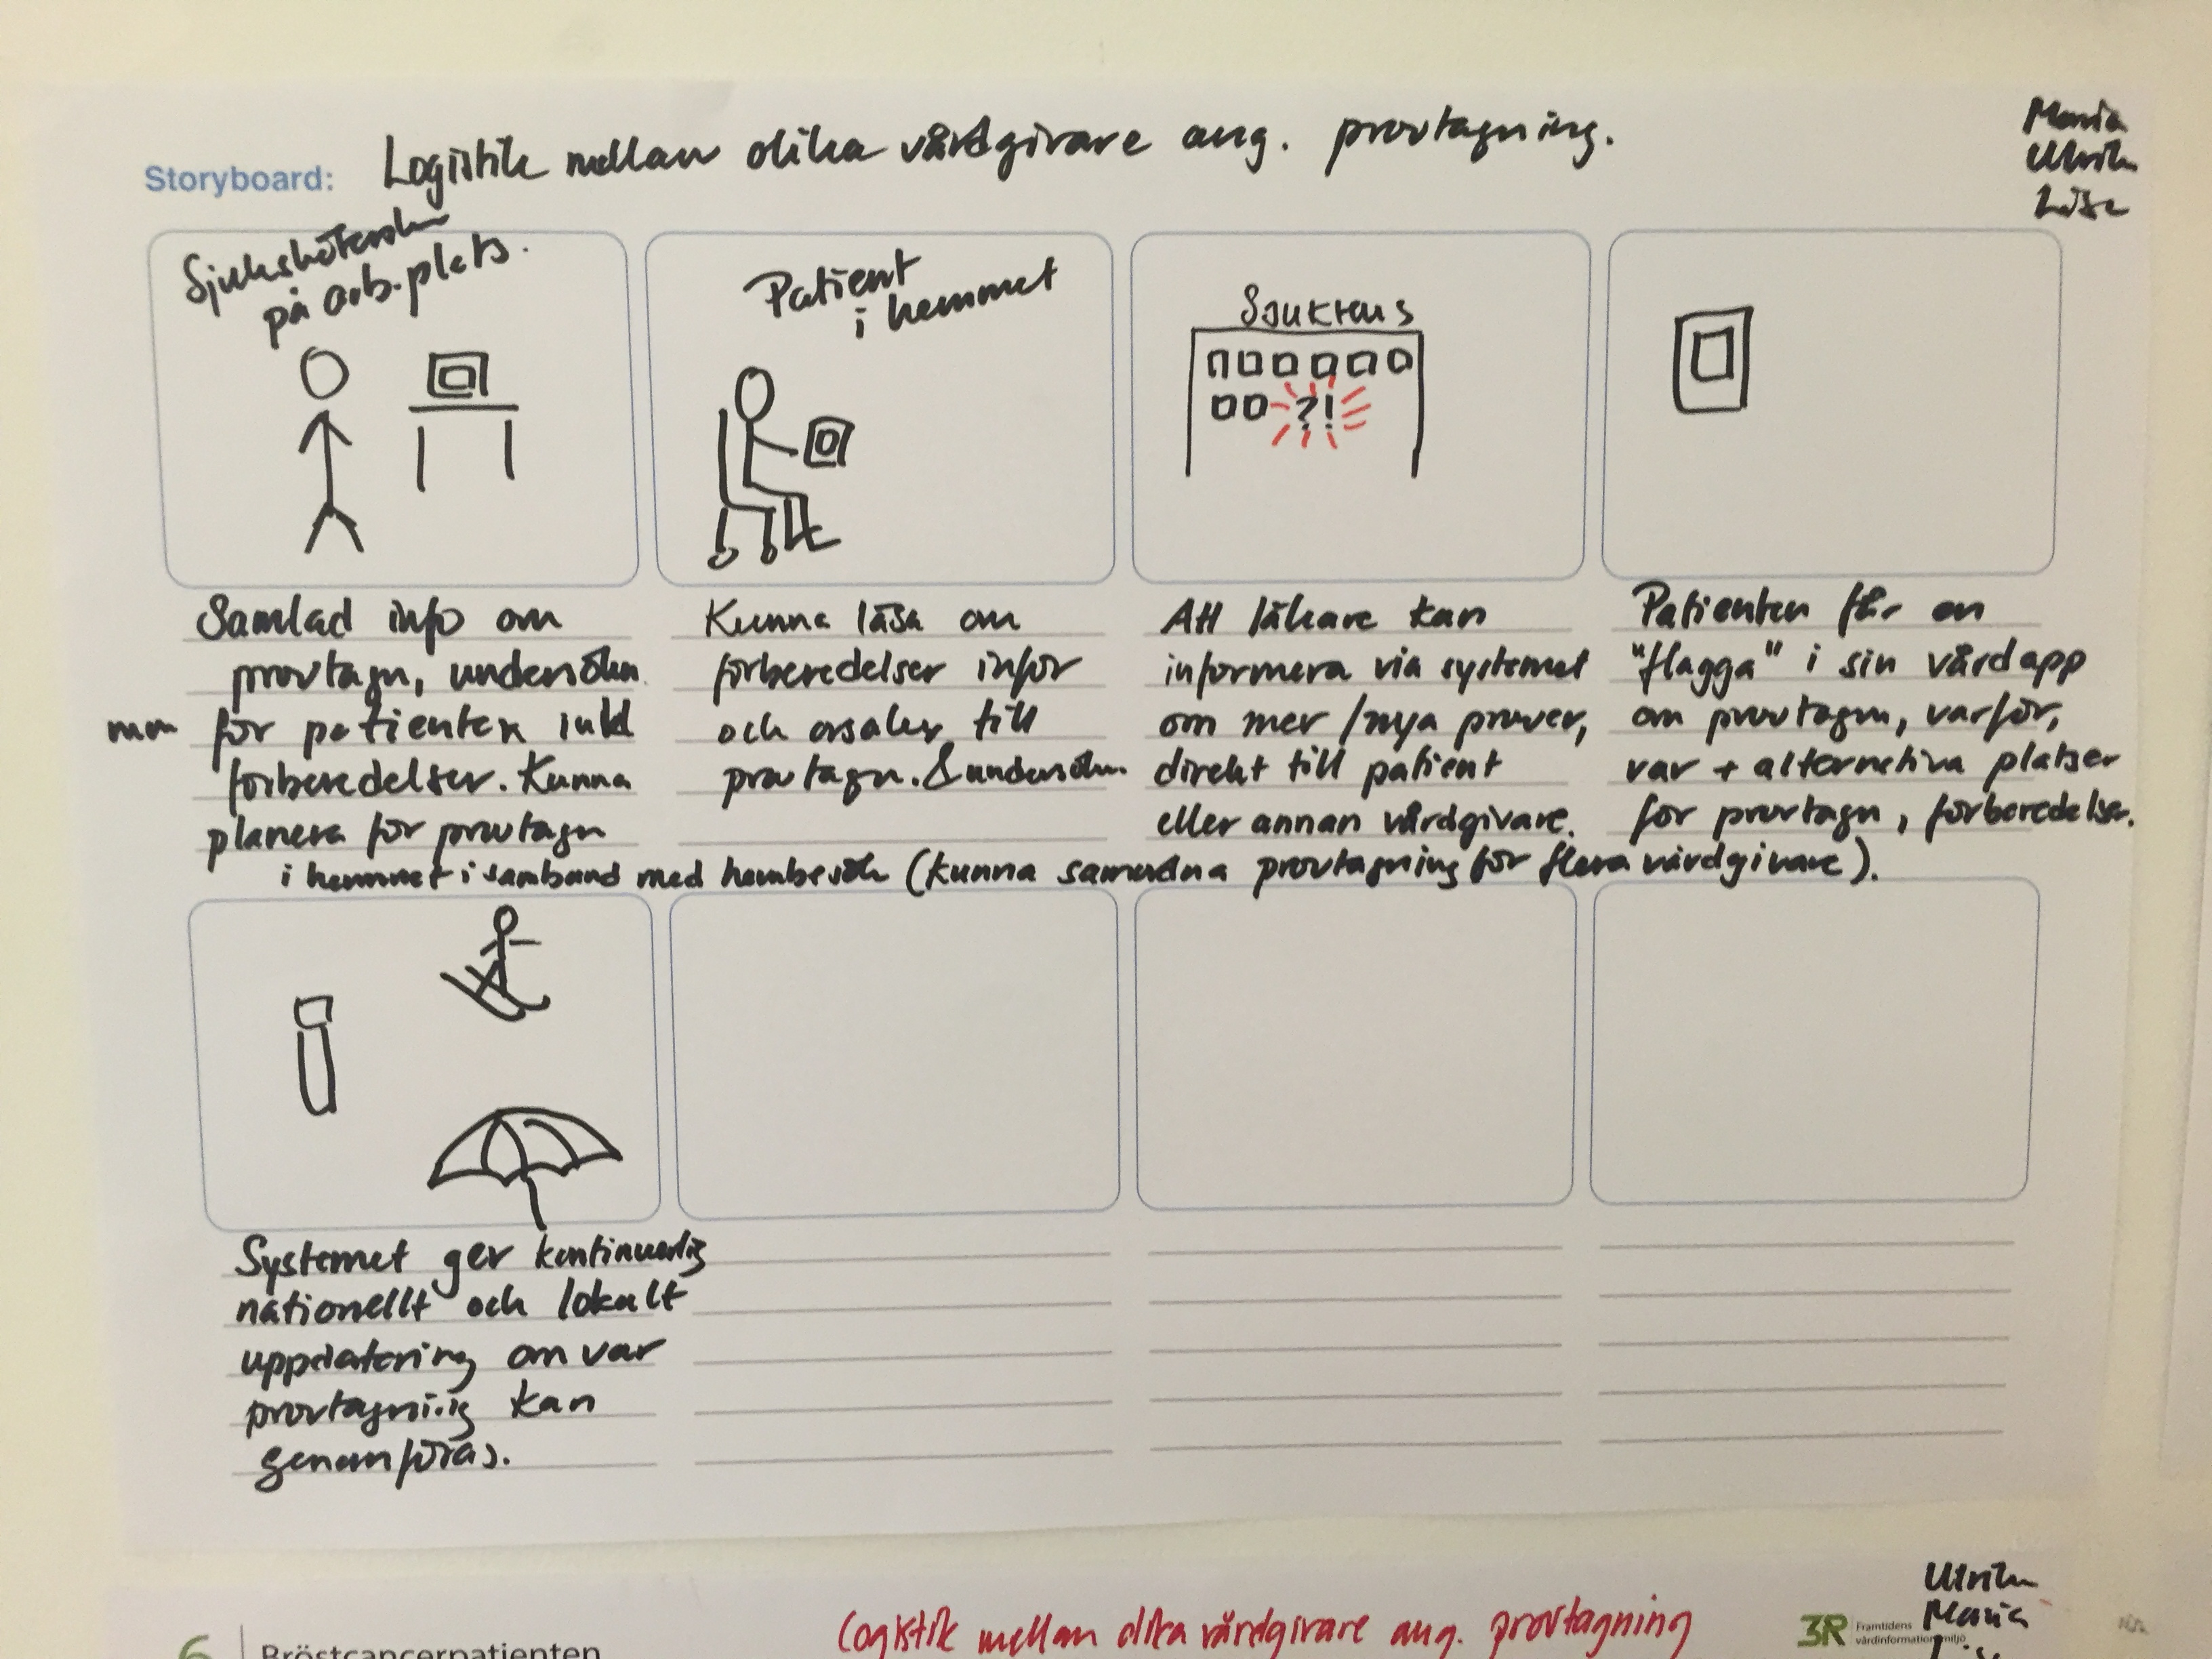 Storyboard: Logistik mellan olika vårdgivare ang. provtagning.
Sjuksköterska
på arb.plats.
Samlad info om
provtagn, undersökn
för patienten inkl
förberedelser. Kunna
planera för provtagn
i hemmet i samband med hembesök (kunna samordna provtagning för flera vårdgivare).
Patient
i hemmet
Kunna läsa om
förberedelser inför
och orsaker till
provtagn. & undersökn.
Sjukhus
?!
Att läkare kan
informera via systemet
om mer/nya prover,
direkt till patient
eller annan vårdgivare.
Patienten får en
"flagga" i sin vårdapp
om provtagn, varför,
var + alternativa platser
för provtagn, förberedelse.
!
Systemet ger kontinuerlig
nationellt och lokalt
uppdatering om var
provtagning kan
genomföras.
6 Bröstcancerpatienten
Logistik mellan olika vårdgivare ang. provtagning
3R Framtidens
vårdinformationsmiljö